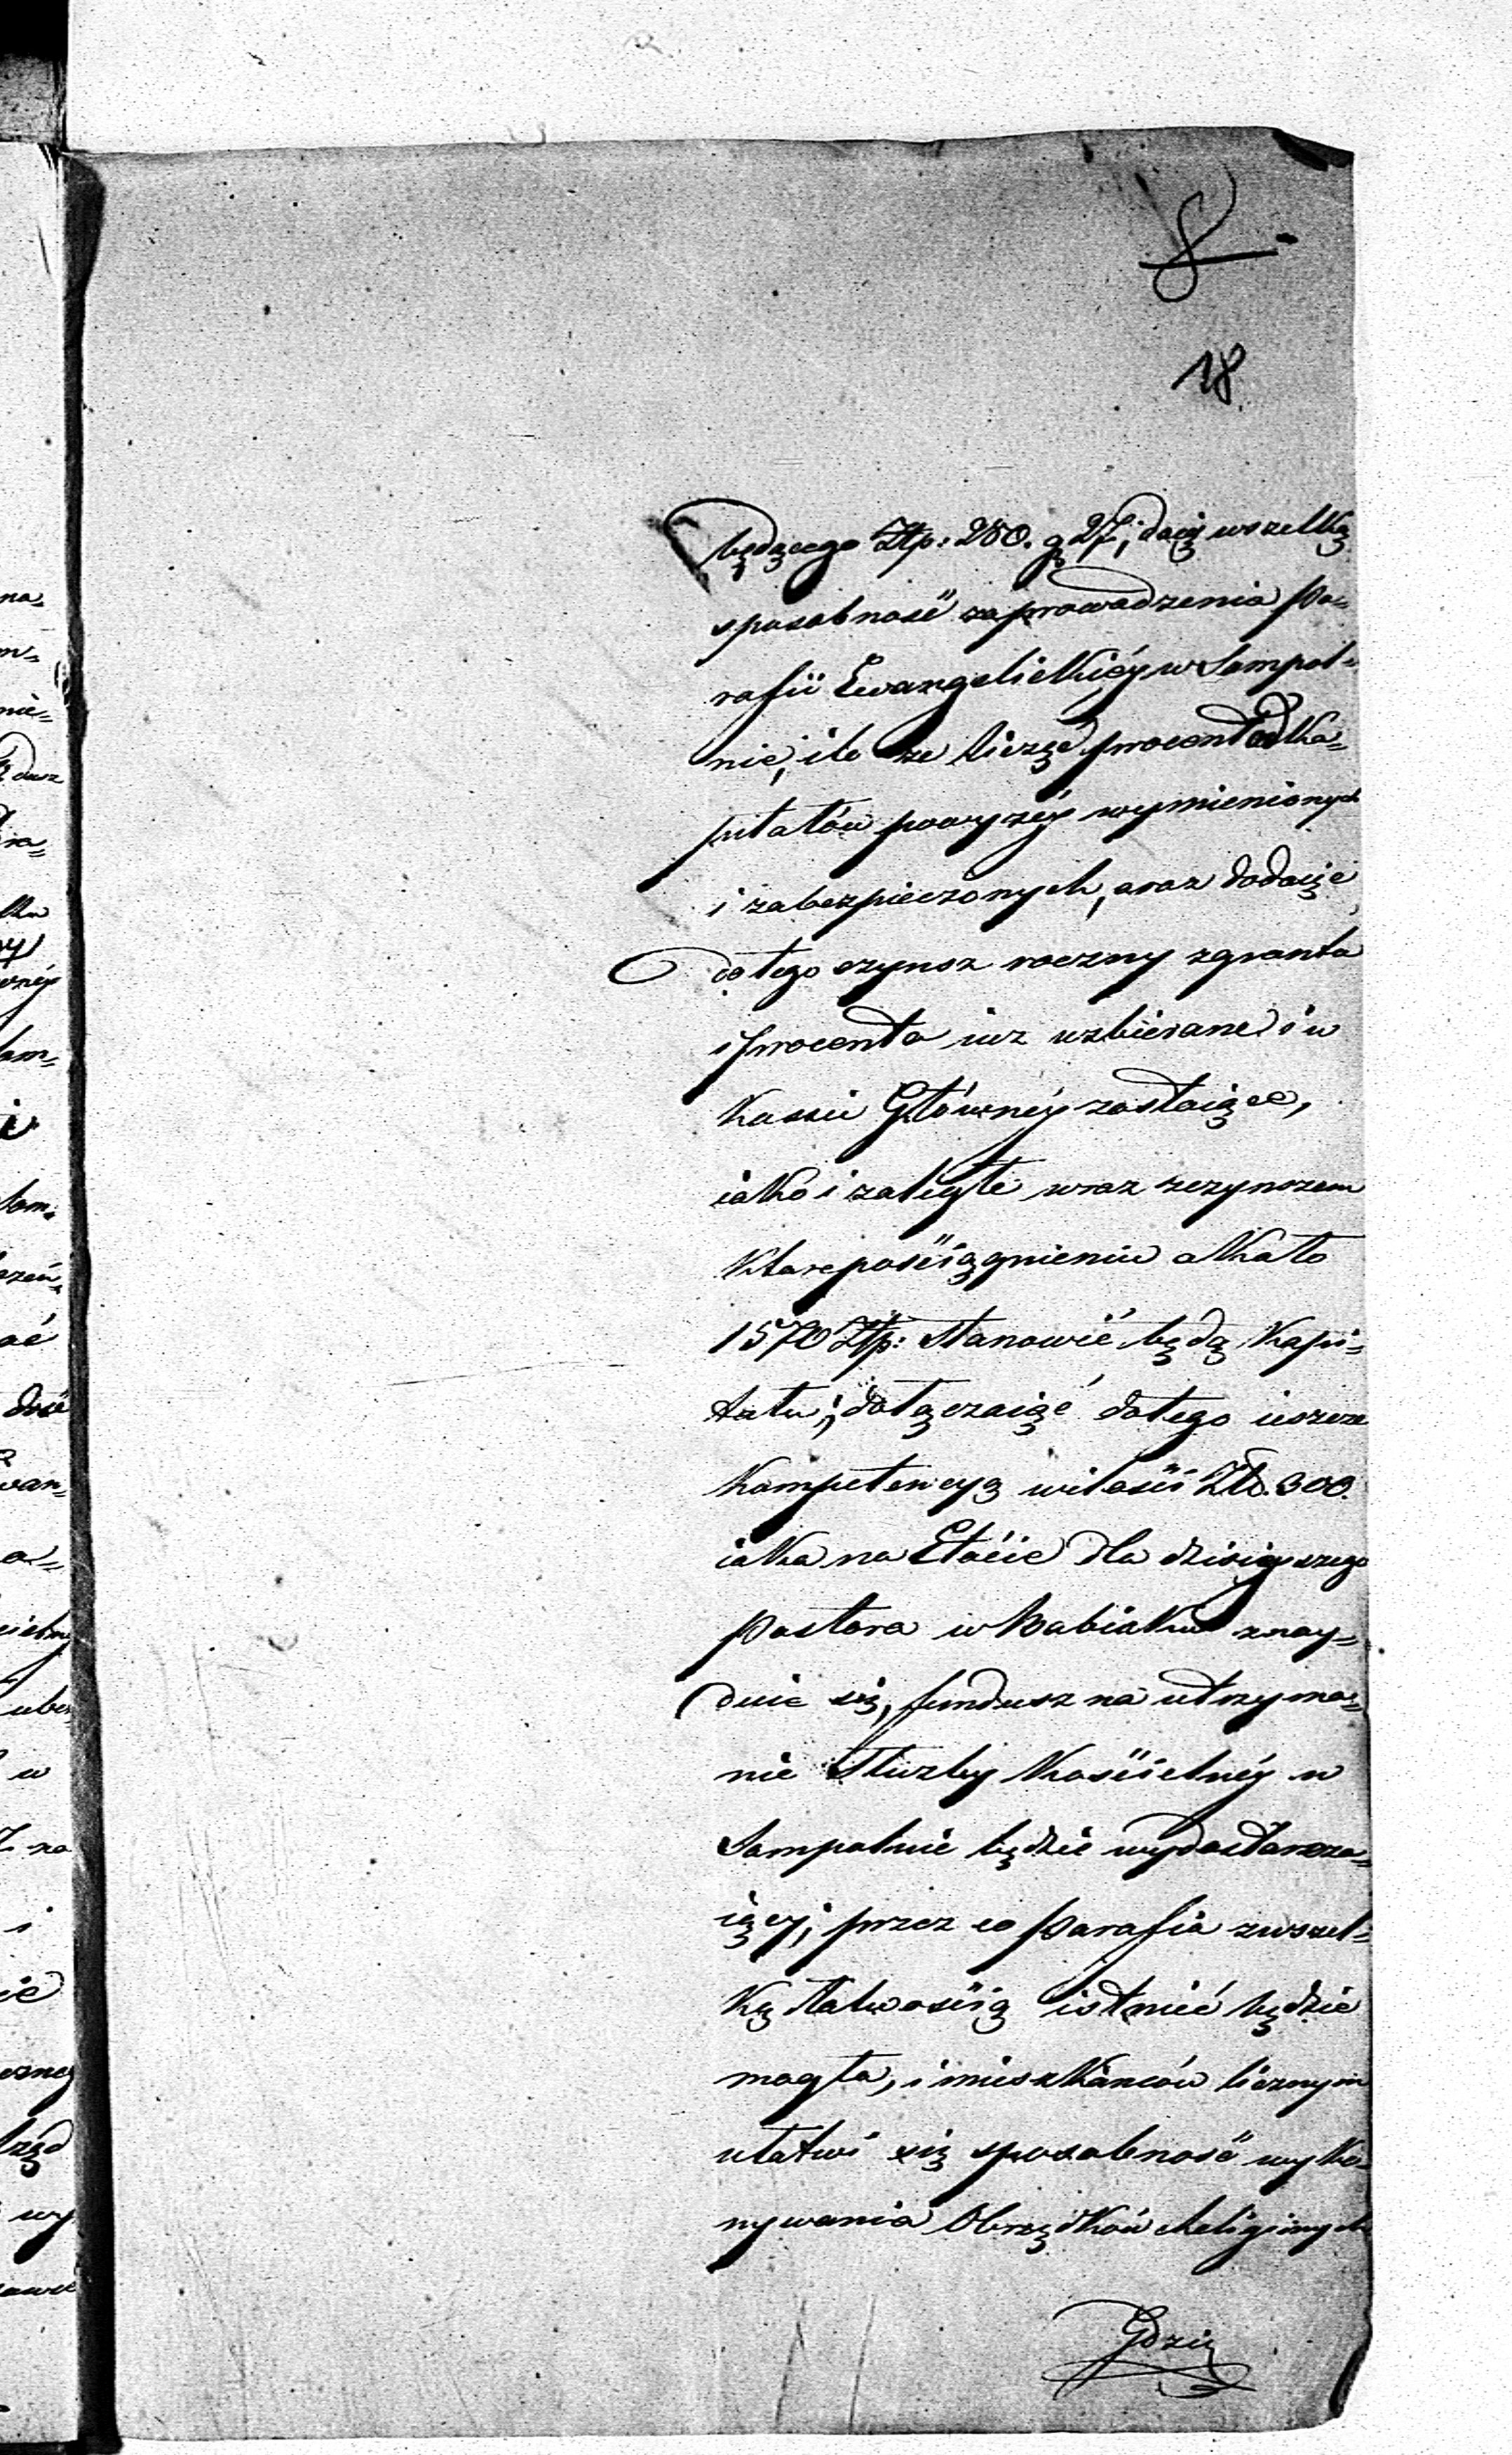 8
18
będącego Złp: 280. g 27, daią wszelką
sposobność zaprowadzenia Pa-
rafii Ewangielickiéy w Sompol-
nie, ile że licząc procent od ka-
pitałów powyżéy wymienionych
i zabezpieczonych, oraz dodaiąc
do tego czynsz roczny z gronta
i procenta iuz uzbierane i w
Kassie Głównéy zostaiące,
iako i zaległe wraz z czynszem
które po ściągnieniu około
1570 Złp: stanowić będą Kapi-
tału; dołączaiąc do tego ieszcze
Kompetencyą w ilości Złt. 300.
iaka na Etacie dla dzisieyszego
Pastora w Babiaku znay-
duie się, fundusz na utrzyma-
nie Służby Kościelnéy w
Sompolnie będzie wydostarcza-
iący, przez co Parafia z wszel-
ką łatwością istnieć będzie
mogła, i mieszkańców licznym
ułatwi się sposobność wyko-
nywania Obrządków Religiinych
Gdzie